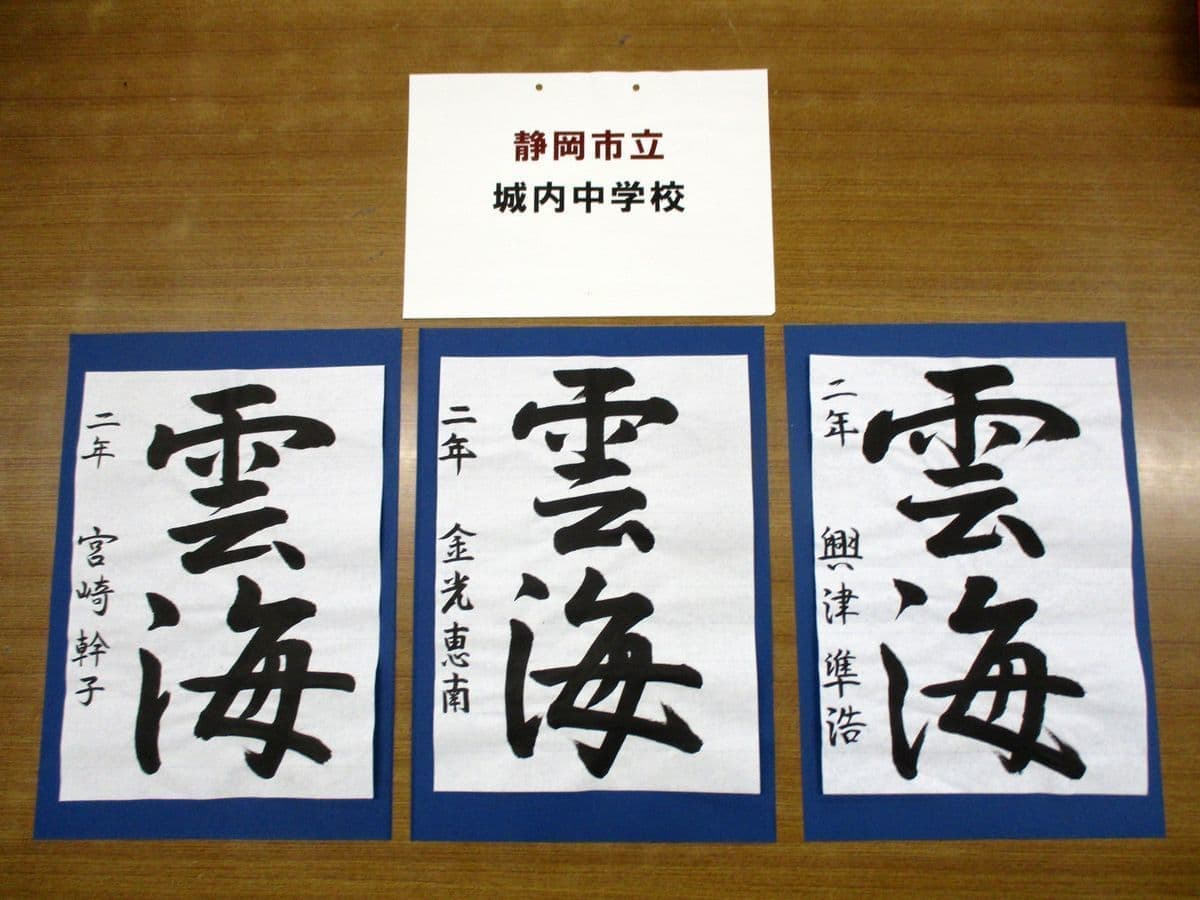 静岡市立
城内中学校
雲海
二年 宮崎幹子
雲海
二年 金光恵南
雲海
二年 興津準浩